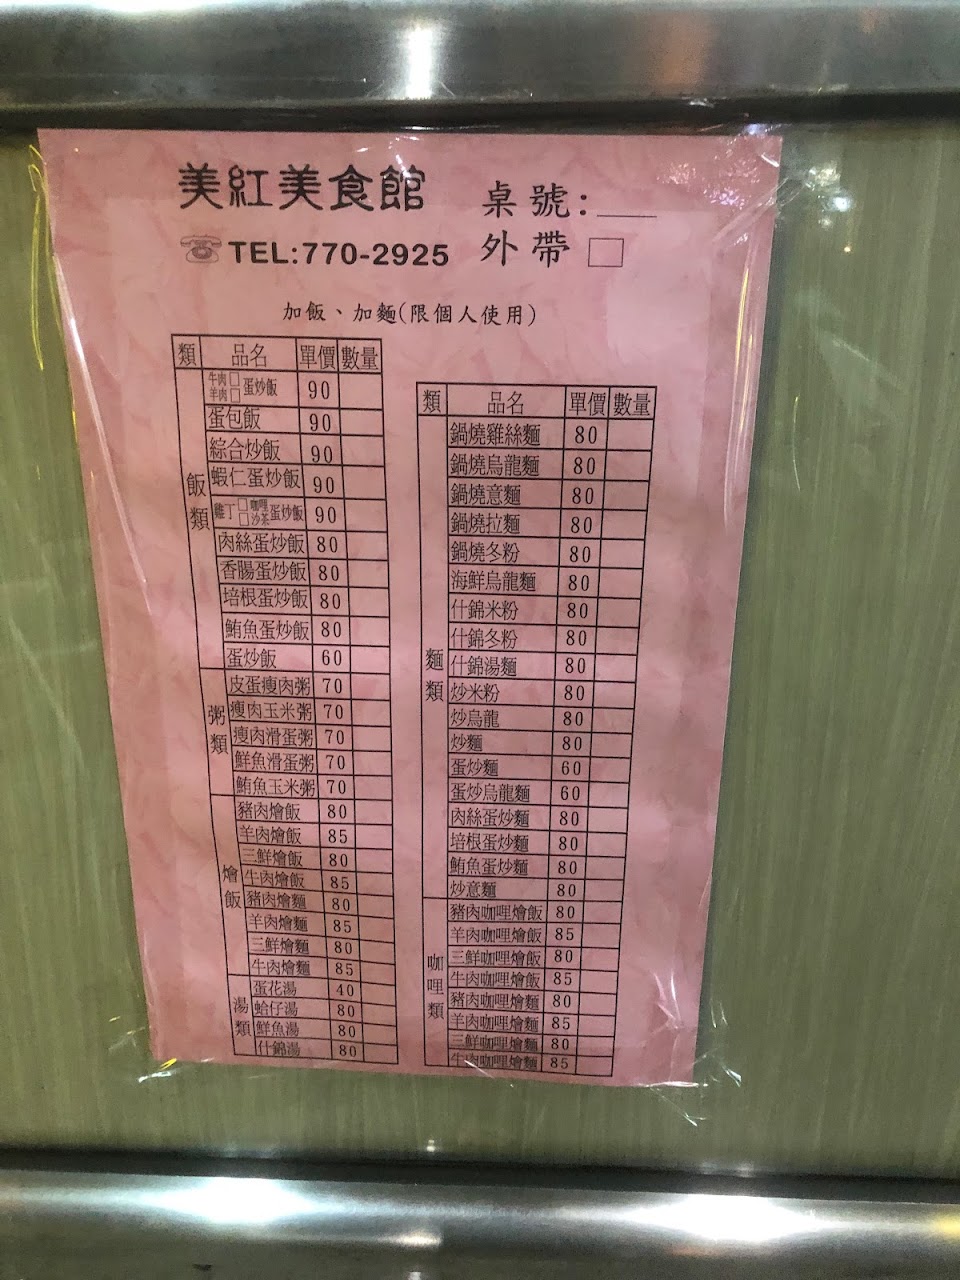 美紅美食館
桌號:
TEL:770-2925
外帶
加飯、加麵(限個人使用)
類 品名 單價 數量
飯類
牛肉 羊肉 蛋炒飯 90
蛋包飯 90
綜合炒飯 90
蝦仁蛋炒飯 90
雞丁 咖哩 沙茶 蛋炒飯 90
肉絲蛋炒飯 80
香腸蛋炒飯 80
培根蛋炒飯 80
鮪魚蛋炒飯 80
蛋炒飯 60
粥類
皮蛋瘦肉粥 70
瘦肉玉米粥 70
瘦肉滑蛋粥 70
鮮魚滑蛋粥 70
鮪魚玉米粥 70
燴飯
豬肉燴飯 80
羊肉燴飯 85
三鮮燴飯 80
牛肉燴飯 85
豬肉燴麵 80
羊肉燴麵 85
三鮮燴麵 80
牛肉燴麵 85
湯類
蛋花湯 40
蛤仔湯 80
鮮魚湯 80
什錦湯 80
類 品名 單價 數量
麵類
鍋燒雞絲麵 80
鍋燒烏龍麵 80
鍋燒意麵 80
鍋燒拉麵 80
鍋燒冬粉 80
海鮮烏龍麵 80
什錦米粉 80
什錦冬粉 80
什錦湯麵 80
炒米粉 80
炒烏龍 80
炒麵 80
蛋炒麵 60
蛋炒烏龍麵 60
肉絲蛋炒麵 80
培根蛋炒麵 80
鮪魚蛋炒麵 80
炒意麵 80
咖哩類
豬肉咖哩燴飯 80
羊肉咖哩燴飯 85
三鮮咖哩燴飯 80
牛肉咖哩燴飯 85
豬肉咖哩燴麵 80
羊肉咖哩燴麵 85
三鮮咖哩燴麵 80
牛肉咖哩燴麵 85